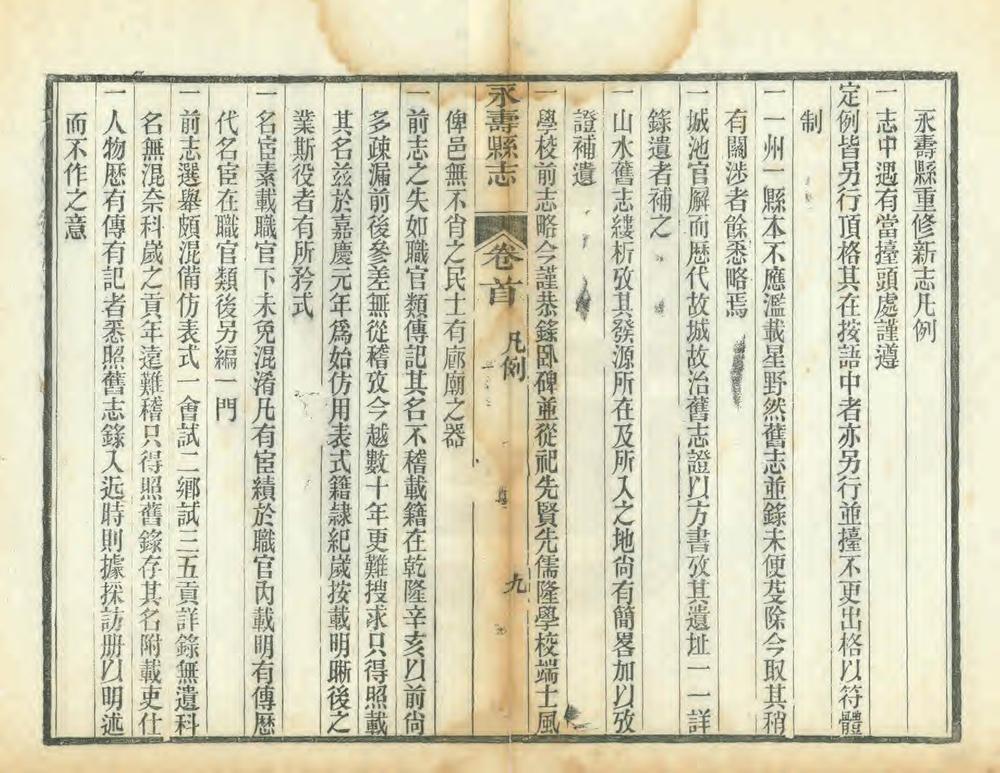 永壽縣重修新志凡例
一志中遇有當擡頭處謹遵
定例皆另行頂格其在按語中者亦另行並擡不更出格以符體
制
一一州一縣本不應濫載星野然舊志並錄未便芟除今取其稍
有關渉者餘悉略焉
一城池官廨而歷代故城故治舊志證以方書攷其遺址一一詳
錄遺者補之
一山水舊志縷析攷其發源所在及所入之地尙有簡畧加以攷
證補遺
一學校前志略今謹恭錄卧碑並從祀先賢先儒隆學校端士風
永壽縣志 卷首 凡例 九
俾邑無不肖之民士有廊廟之器
一前志之失如職官類傳記其名不稽載籍在乾隆辛亥以前尙
多疎漏前後參差無從稽攷今越數十年更難搜求只得照載
其名兹於嘉慶元年爲始仿用表式籍隷紀歲按載明晰後之
業斯役者有所矜式
一名宦素載職官下未免混淆凡有宦績於職官內載明有傳歷
代名宦在職官類後另編一門
一前志選舉頗混備仿表式一會試二鄉試三五貢詳錄無遺科
名無混奈科歲之貢年遠難稽只得照舊錄存其名附載吏仕
一人物歷有傳有記者悉照舊志錄入近時則據採訪册以明述
而不作之意